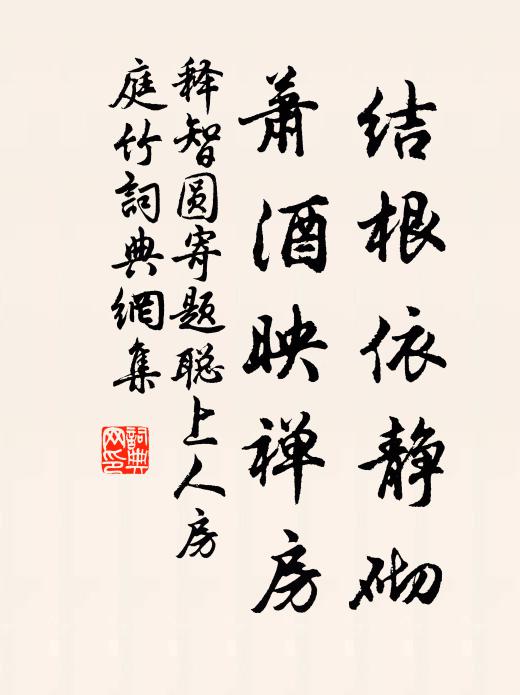 结根依静砌
萧酒映禅房
释智圆寄题聪上人房
庭竹詞典網集
詞典网印